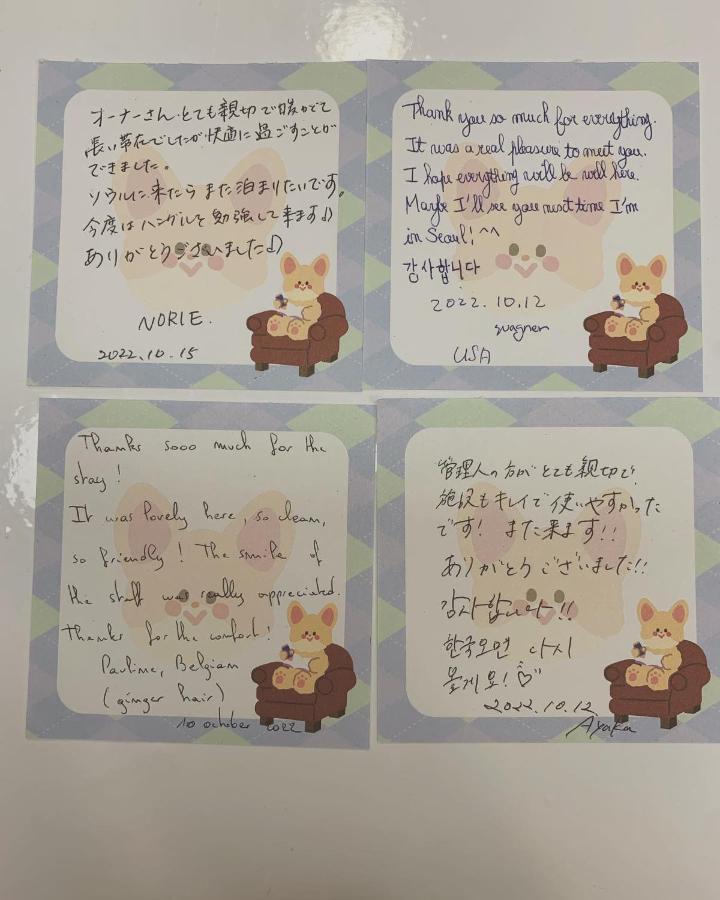 オーナーさん、とても親切で暖かくて
長い滞在でしたが快適に過ごすことが
できました。
ソウルに来たらまた泊まりたいです。
今度はハングルを勉強して来ます♪
ありがとうございました♪
NORIE.
2022.10.15
Thank you so much for everything.
It was a real pleasure to meet you.
I hope everything will be well here.
Maybe I'll see you next time I'm
in Seoul! ^^
감사합니다
2022.10.12
wagner
USA
Thanks sooo much for the
stay!
It was lovely here, so clean,
so friendly! The smile of
the staff was really appreciated.
Thanks for the comfort!
Pauline, Belgian
(ginger hair)
10 october 2022
管理人の方がとても親切で
施設もキレイで使いやすかった
です! また来ます!!
ありがとうございました!!
감사합니다!!
한국오면 다시
올게요!♡
2022.10.12
Ayaka